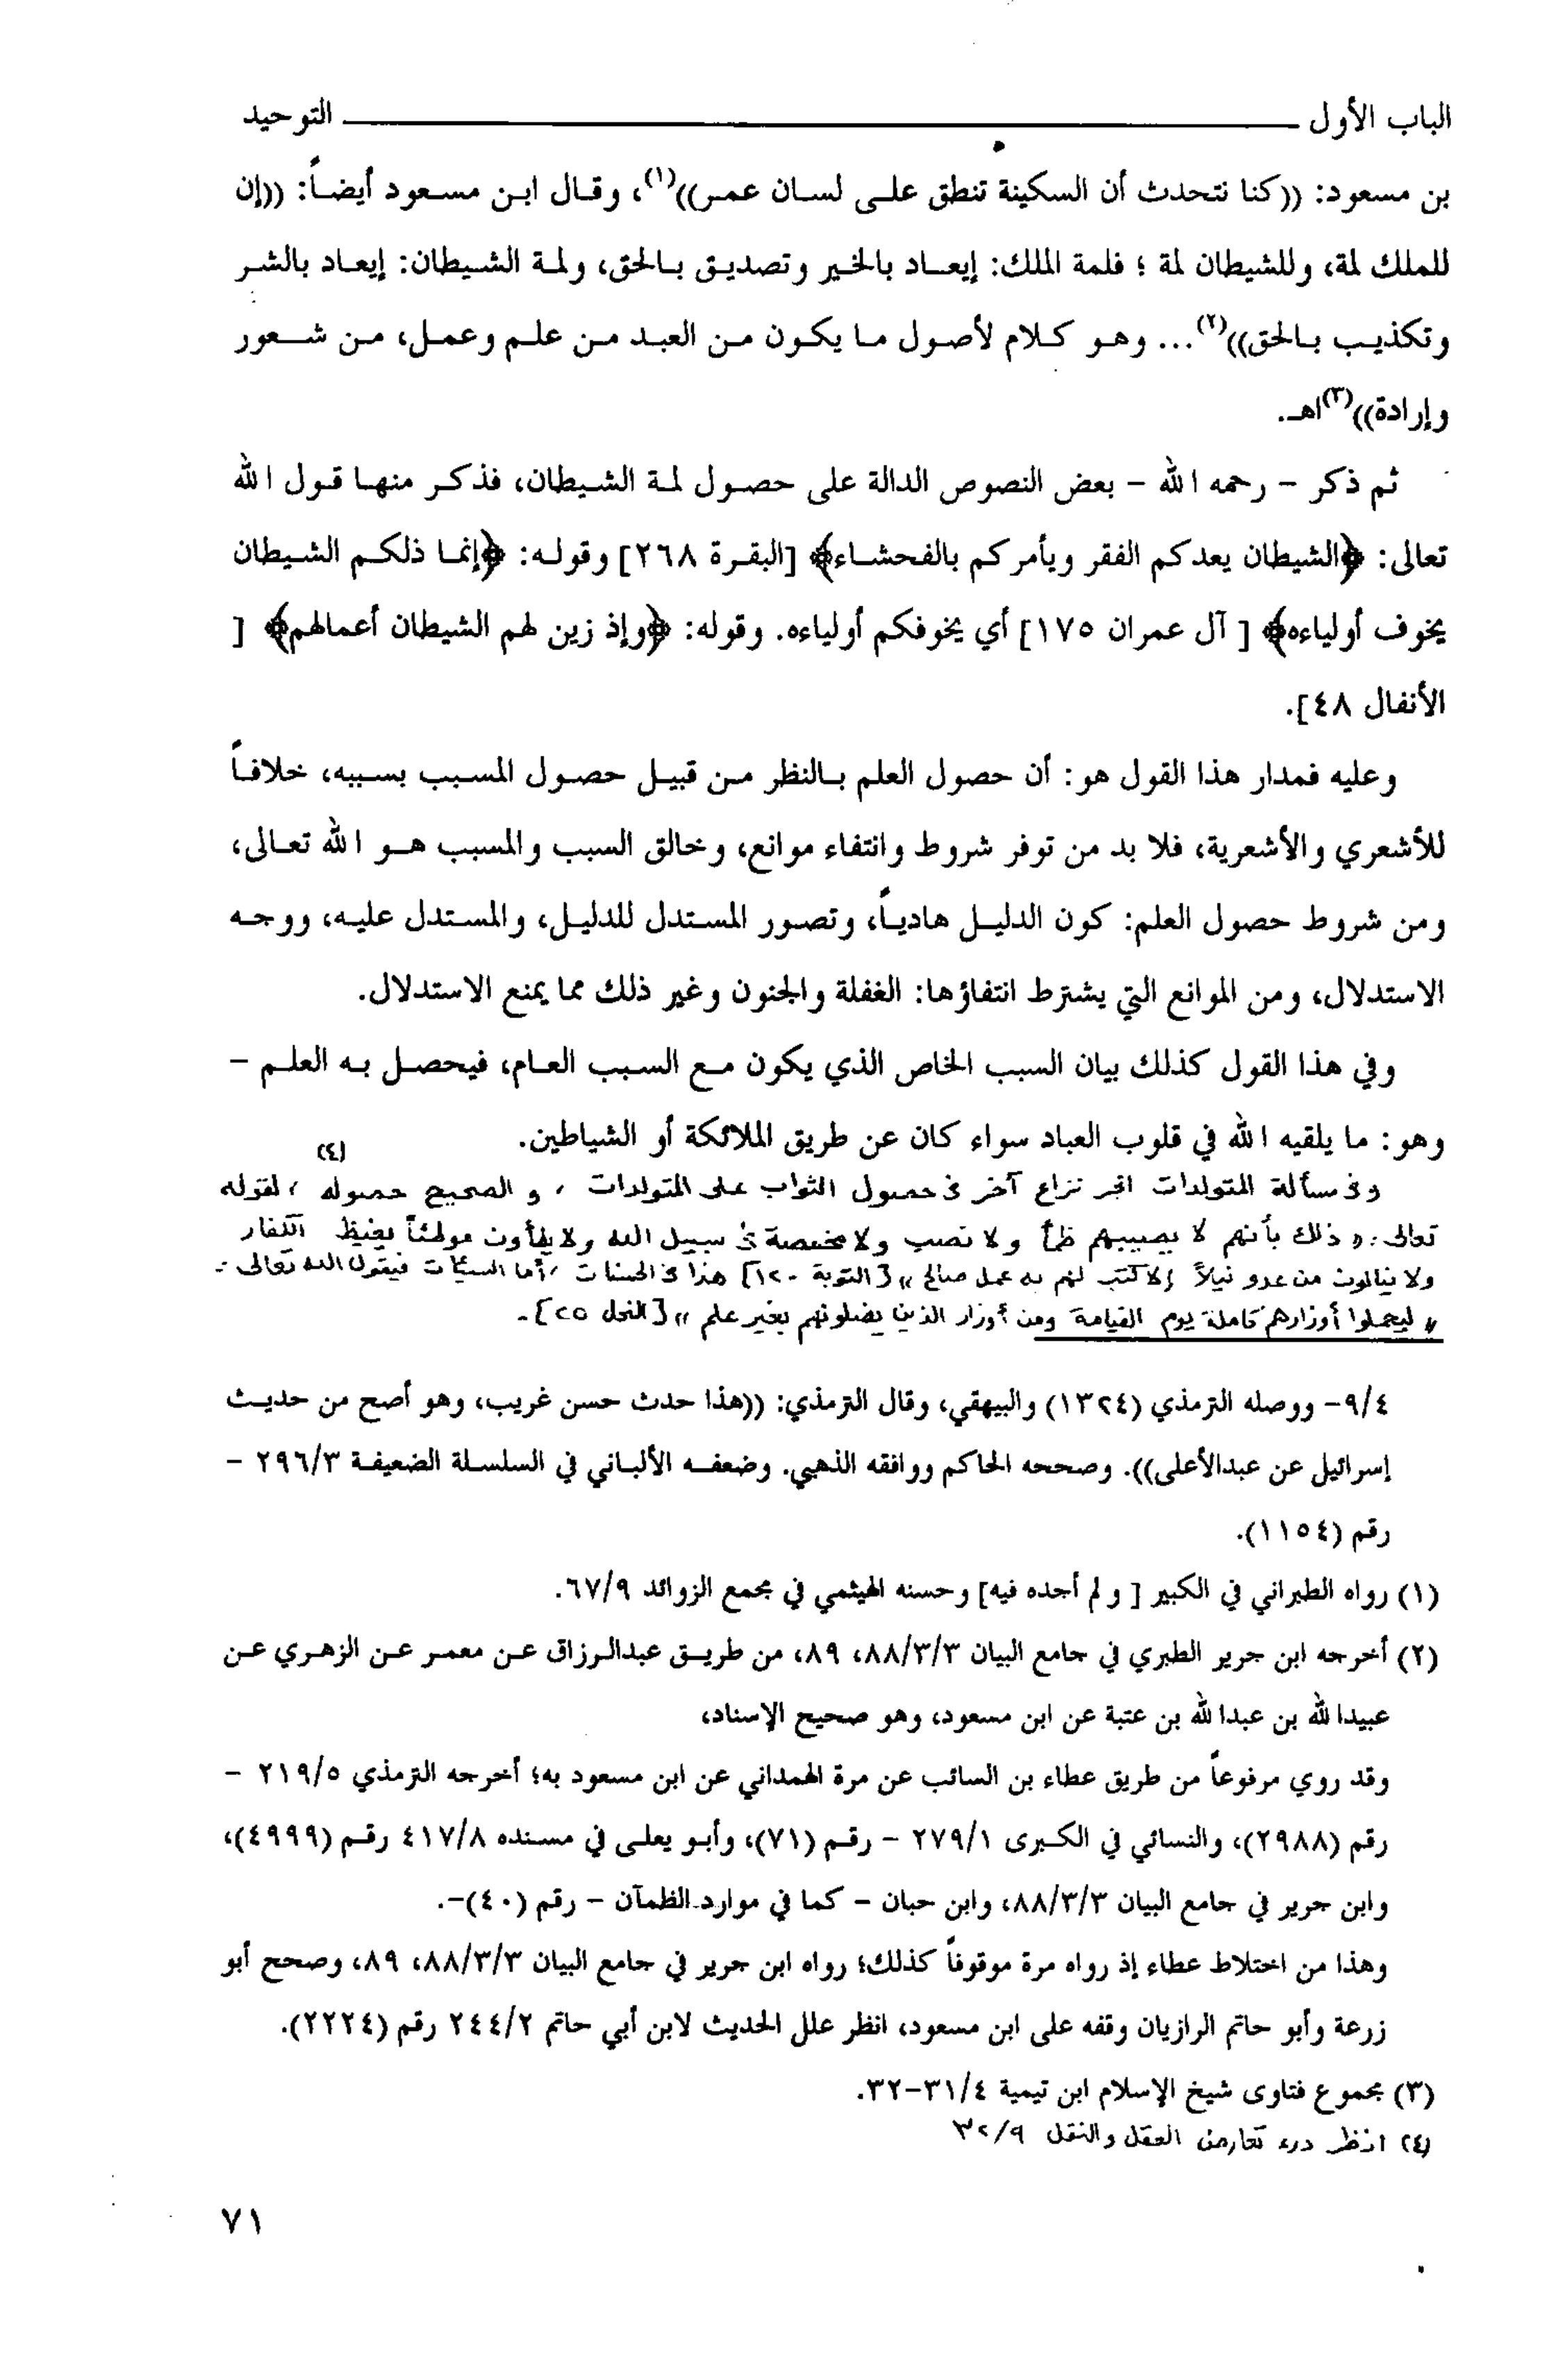 الباب الأول ــــــــــــ التوحيد
بن مسعود: ((كنا نتحدث أن السكينة تنطق على لسان عمر))(١)، وقال ابن مسعود أيضاً: ((إن
للملك لمة، وللشيطان لمة ؛ فلمة الملك: إيعاد بالخير وتصديق بالحق، ولمة الشيطان: إيعاد بالشر
وتكذيب بالحق))(٢)... وهو كلام لأصول ما يكون من العبد من علم وعمل، من شعور
وإرادة))(٣)اهـ.
ثم ذكر - رحمه الله - بعض النصوص الدالة على حصول لمة الشيطان، فذكر منها قول الله
تعالى: ﴿الشيطان يعدكم الفقر ويأمركم بالفحشاء﴾ [البقرة ٢٦٨] وقوله: ﴿إنما ذلكم الشيطان
يخوف أولياءه﴾ [ آل عمران ١٧٥] أي يخوفكم أولياءه. وقوله: ﴿وإذ زين لهم الشيطان أعمالهم﴾ [
الأنفال ٤٨].
وعليه فمدار هذا القول هو: أن حصول العلم بالنظر من قبيل حصول المسبب بسببه، خلافاً
للأشعري والأشعرية، فلا بد من توفر شروط وانتفاء موانع، وخالق السبب والمسبب هو الله تعالى،
ومن شروط حصول العلم: كون الدليل هادياً، وتصور المستدل للدليل، والمستدل عليه، ووجه
الاستدلال، ومن الموانع التي يشترط انتفاؤها: الغفلة والجنون وغير ذلك مما يمنع الاستدلال.
وفي هذا القول كذلك بيان السبب الخاص الذي يكون مع السبب العام، فيحصل به العلم -
وهو: ما يلقيه الله في قلوب العباد سواء كان عن طريق الملائكة أو الشياطين. (٤)
وفى مسألة المتولدات انجر نزاع آخر فى حصول الثواب على المتولدات ، والصحيح حصوله ، لقوله
تعالى : « ذلك بأنهم لا يصيبهم ظمأ ولا نصب ولا مخمصة فى سبيل الله ولا يطأون موطئاً يغيظ الكفار
ولا ينالون من عدو نيلاً إلا كتب لهم به عمل صالح » [التوبة ١٢٠] هذا فى الحسنات ، أما السيئات فيقول الله تعالى :
« ليحملوا أوزارهم كاملة يوم القيامة ومن أوزار الذين يضلونهم بغير علم » [النحل ٢٥].
٩/٤- ووصله الترمذي (١٣٢٤) والبيهقي، وقال الترمذي: ((هذا حدث حسن غريب، وهو أصح من حديث
إسرائيل عن عبدالأعلى)). وصححه الحاكم ووافقه الذهبي. وضعفه الألباني في السلسلة الضعيفة ٢٩٦/٣ -
رقم (١١٥٤).
(١) رواه الطبراني في الكبير [ ولم أجده فيه] وحسنه الهيثمي في مجمع الزوائد ٦٧/٩.
(٢) أخرجه ابن جرير الطبري في جامع البيان ٨٨/٣/٣، ٨٩، من طريق عبدالرزاق عن معمر عن الزهري عن
عبيدالله بن عبدالله بن عتبة عن ابن مسعود، وهو صحيح الإسناد،
وقد روي مرفوعاً من طريق عطاء بن السائب عن مرة الهمداني عن ابن مسعود به؛ أخرجه الترمذي ٢١٩/٥ -
رقم (٢٩٨٨)، والنسائي في الكبرى ٢٧٩/١ - رقم (٧١)، وأبو يعلى في مسنده ٤١٧/٨ رقم (٤٩٩٩)،
وابن جرير في جامع البيان ٨٨/٣/٣، وابن حبان - كما في موارد الظمآن - رقم (٤٠)-.
وهذا من اختلاط عطاء إذ رواه مرة موقوفاً كذلك؛ رواه ابن جرير في جامع البيان ٨٨/٣/٣، ٨٩، وصحح أبو
زرعة وأبو حاتم الرازيان وقفه على ابن مسعود، انظر علل الحديث لابن أبي حاتم ٢٤٤/٢ رقم (٢٢٢٤).
(٣) مجموع فتاوى شيخ الإسلام ابن تيمية ٣١/٤-٣٢.
(٤) انظر درء تعارض العقل والنقل ٣٢/٩
٧١